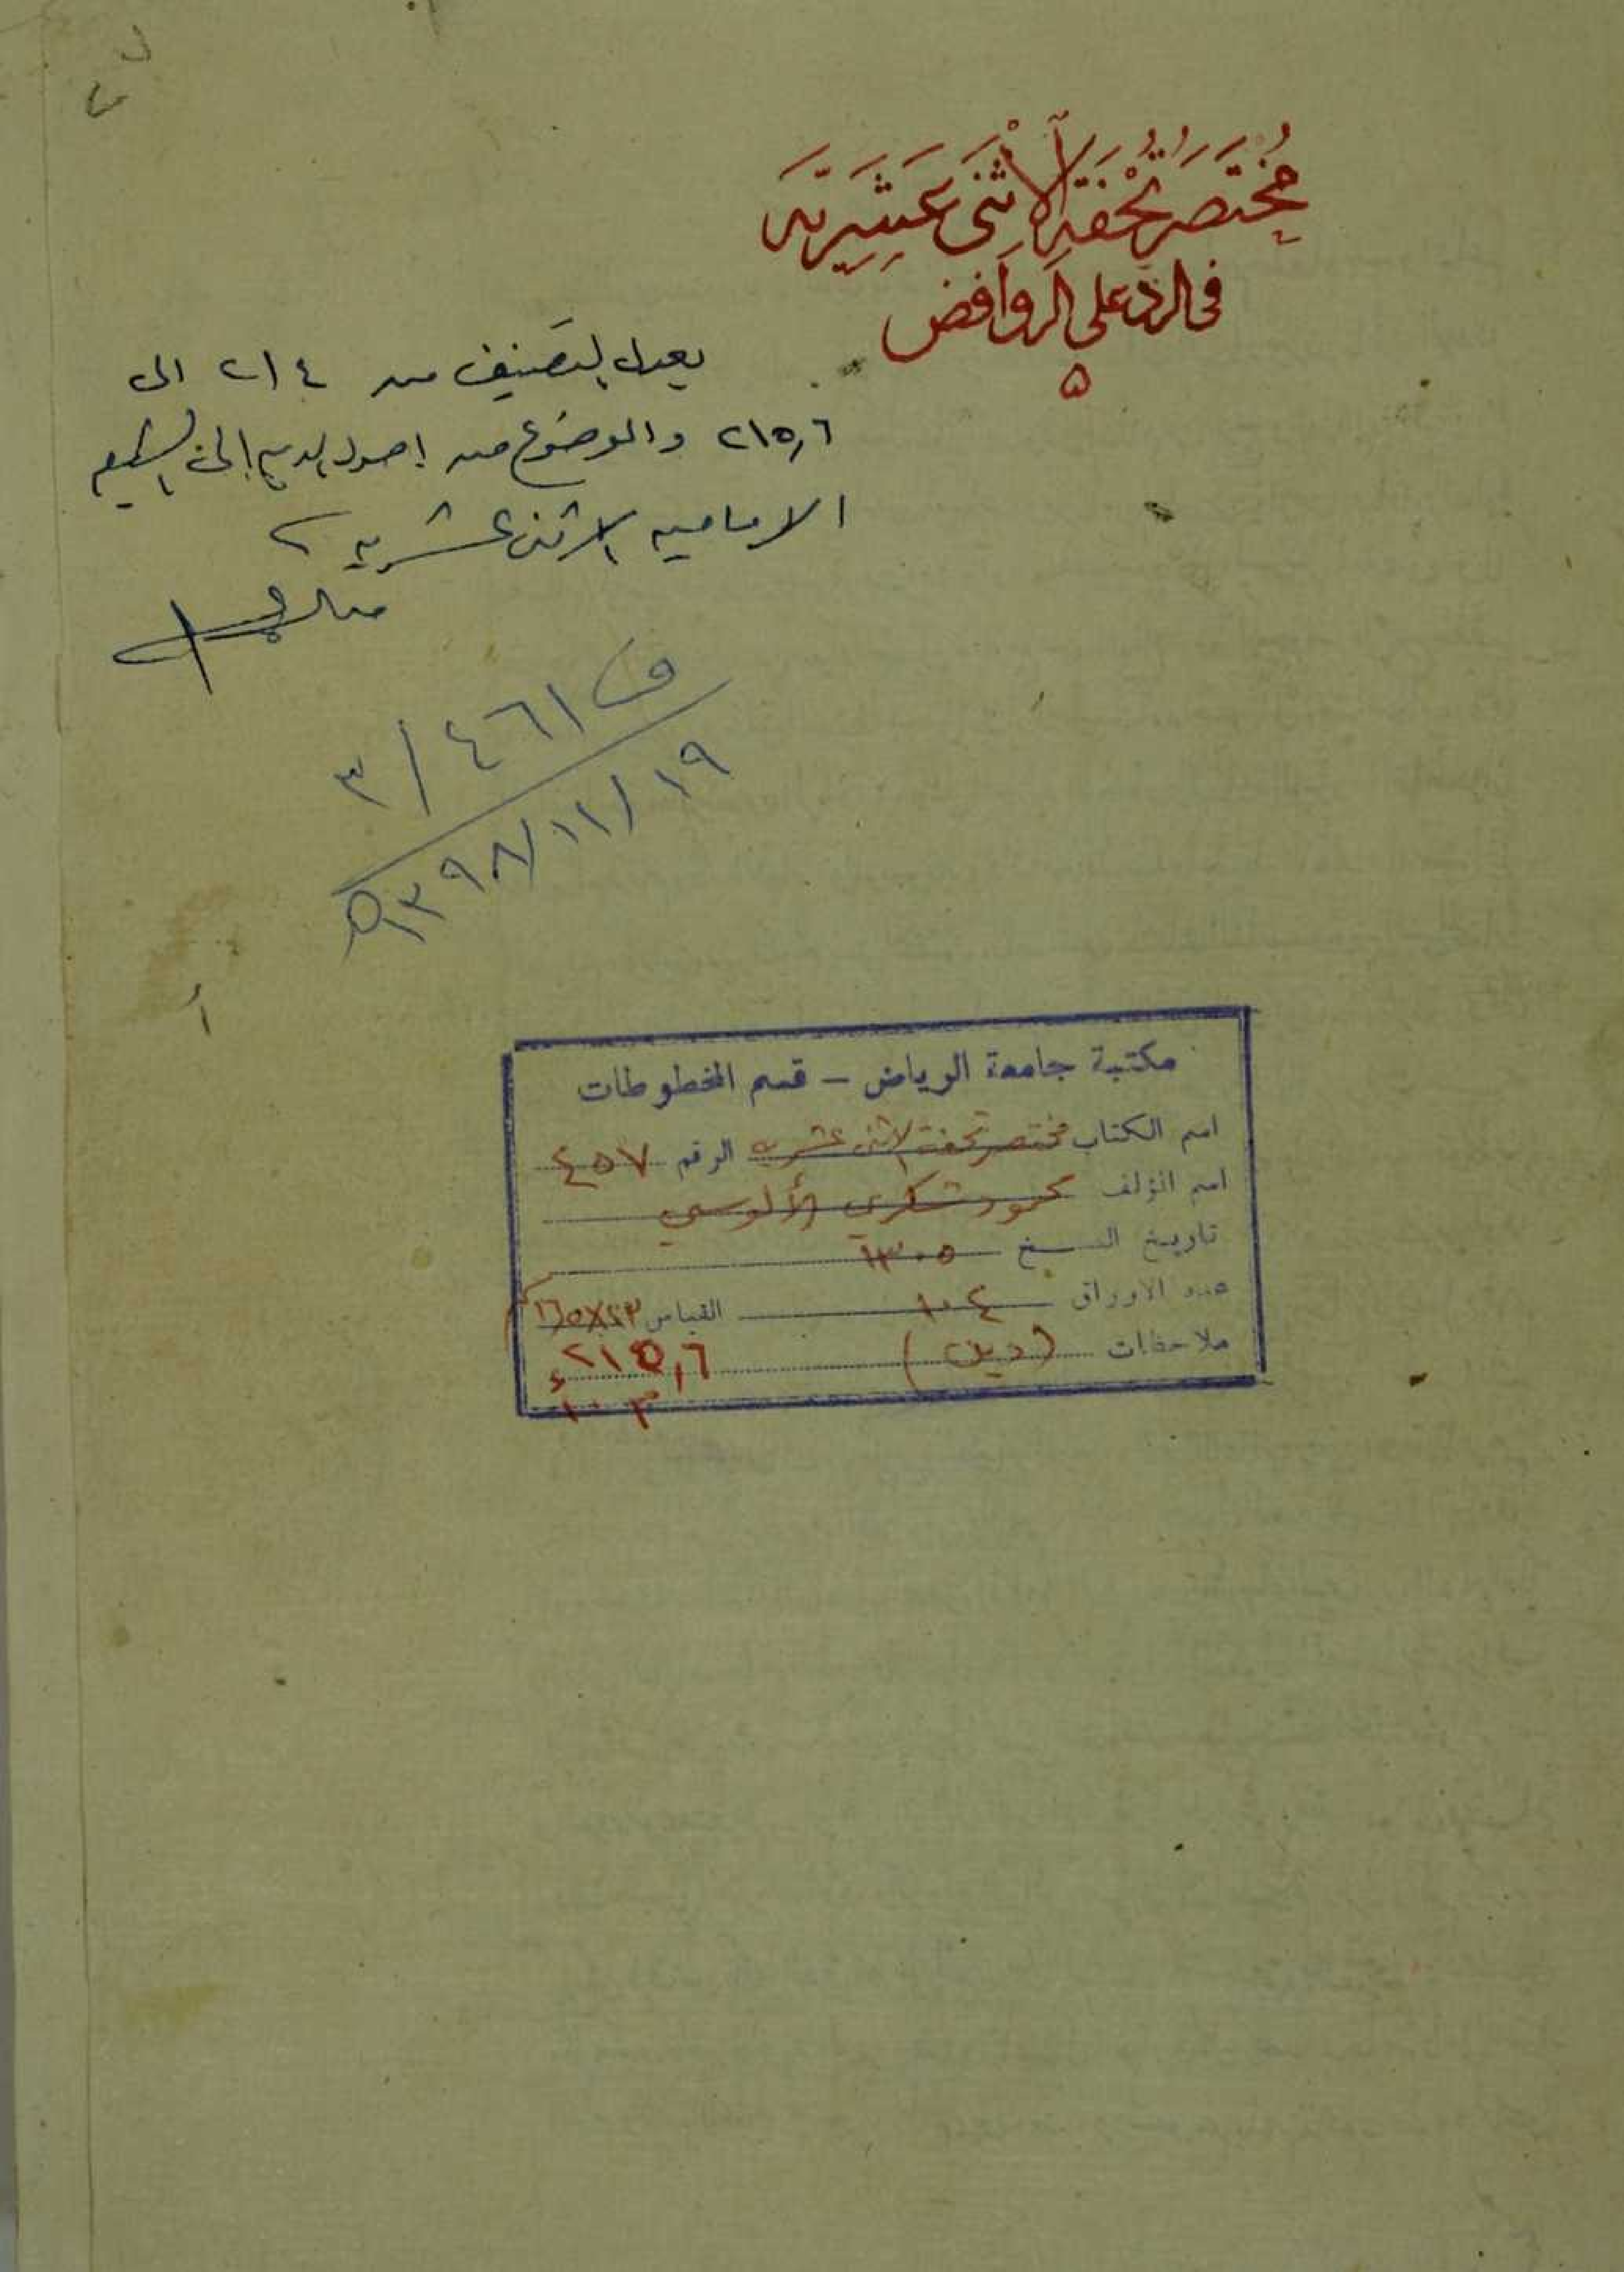 مُختَصَرُ تُحْفَةِ الْاِثْنَى عَشَرِيَّه
فى الرد على الروافض
٥
يعدل التصنيف من ٢١٤ الى
٢١٥,٦ والموضوع من اصول الدين إلى الشيعة
الامامية الاثنى عشرية
ف ٤٦١ / ٣
١٣٩٨/١١/١٩ هـ
أ
مكتبة جامعة الرياض – قسم المخطوطات
اسم الكتاب مختصر تحفة الاثنى عشريه الرقم ٤٥٧
اسم المؤلف محمود شكري الألوسي
تاريخ النسخ ١٣٠٥
عدد الاوراق ١٠٤ القياس ٢٣×١٦٫٥ سم
ملاحظات (دين) ٢١٥,٦